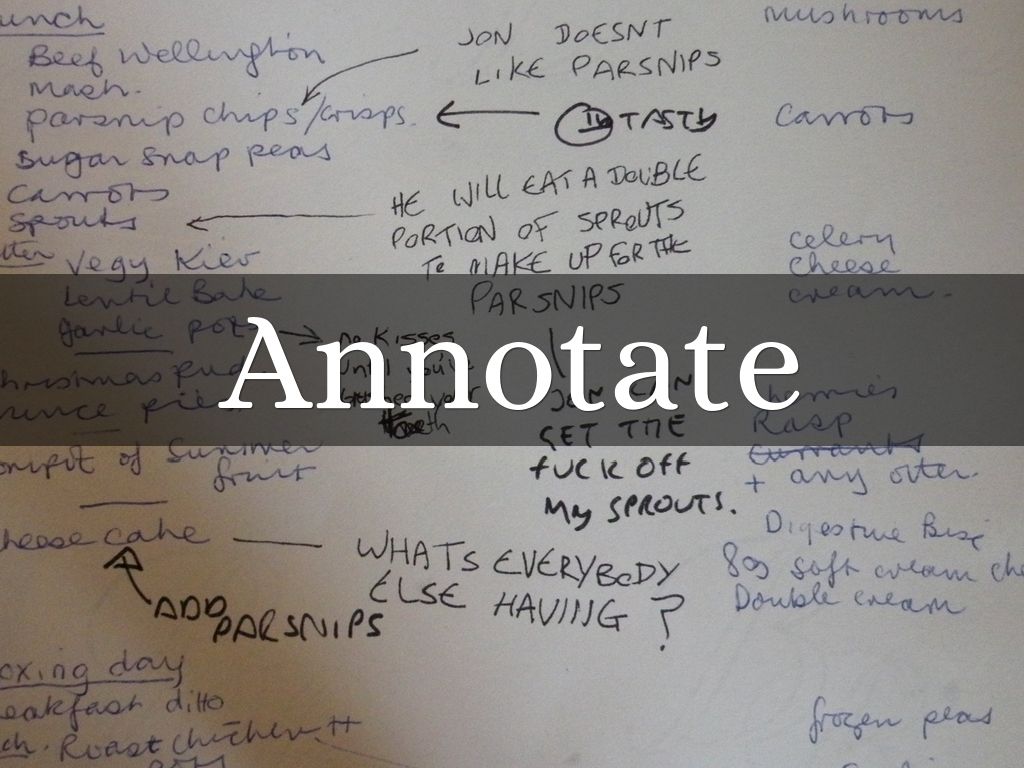 unch
Beef Wellington
Mash.
parsnip chips/crisps.
Sugar Snap peas
Carrots
Sprouts
Vegy Kiev
Lentil Bake
garlic pots
no kisses
until you've
your
teeth
hristmas Pud
mince pies
ompot of Summer
fruit
heese cake
ADD
PARSNIPS
oxing day
eakfast ditto
ch. Roast chicken
JON DOESNT
LIKE PARSNIPS
TASTY
HE WILL EAT A DOUBLE
PORTION OF SPROUTS
To MAKE UP FOR THE
PARSNIPS
JON CAN
GET THE
FUCK OFF
My SPROUTS.
WHATS EVERYBODY
ELSE HAVING?
Annotate
mushrooms
Carrots
celery
cheese
cream.
Rasp
currants
+ any other.
Digestive Bisc
soft cream che
Double cream
frozen peas